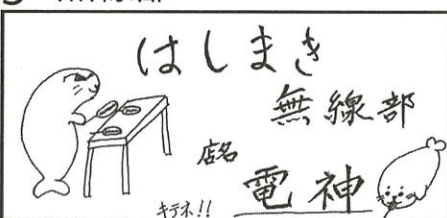 はしまき
無線部
店名
電神
キテネ!!